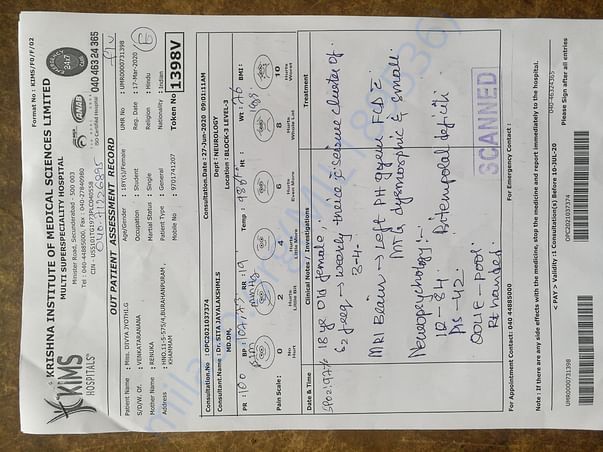 Format No : KIMS/FO/F/02
KIMS
HOSPITALS
KRISHNA INSTITUTE OF MEDICAL SCIENCES LIMITED
MULTI SUPERSPECIALITY HOSPITAL
Minister Road, Secunderabad - 500 003
Tel : 040-44885000, Fax : 040-27840980
24x7
040 463 24 365
OUT PATIENT ASSESSMENT RECORD
Patient Name : Miss. DIVYA JYOTHI.G
Age/Gender : 18Y(S)/Female
UMR No : UMR0000731398
S/D/W. Of : VENKATARAMANA
Occupation : Student
Reg. Date : 17-Mar-2020
Mother Name : RENUKA
Marital Status : Single
Religion : Hindu
Address : HNO.11-5-575/4,BURAHANPURAM, KHAMMAM
Patient Type : General
Nationality : Indian
Mobile No : 9701741207
Token No 1398V
Consultation.No : OPC2021037374
Consultation.Date : 27-Jun-2020 09:01:11AM
Consultant.Name : Dr. SITA JAYALAKSHMI.S
MD.DM.
Dept : NEUROLOGY
Location : BLOCK-3 LEVEL-3
PR : 100 BP : RR : 19 Temp : Ht : Wt : BMI :
Pain Scale : 0 2 4 6 8 10
No Hurt
Hurts Little Bit
Hurts Little More
Hurts Even More
Hurts Whole Lot
Hurts Worst
Date & Time
Clinical Notes / Investigations
Treatment
18 yr old female,
→ weekly thrice c seizure cluster of
3-4.
MRI Brain → Left PH gyrus FCD c
MTG dysmorphic & small.
Neuropsychology :-
IQ - 84. Bitemporal deficits
DS - 42.
QOLIE - Poor
Rt handed
SCANNED
For Appointment Contact: 040 44885000
For Emergency Contact :
040-46324365
Note : If there are any side effects with the medicine, stop the medicine and report immediately to the hospital.
Please Sign after all entries
< PAY > Validity :1 Consultation(s) Before 10-JUL-20
UMR0000731398
OPC2021037374